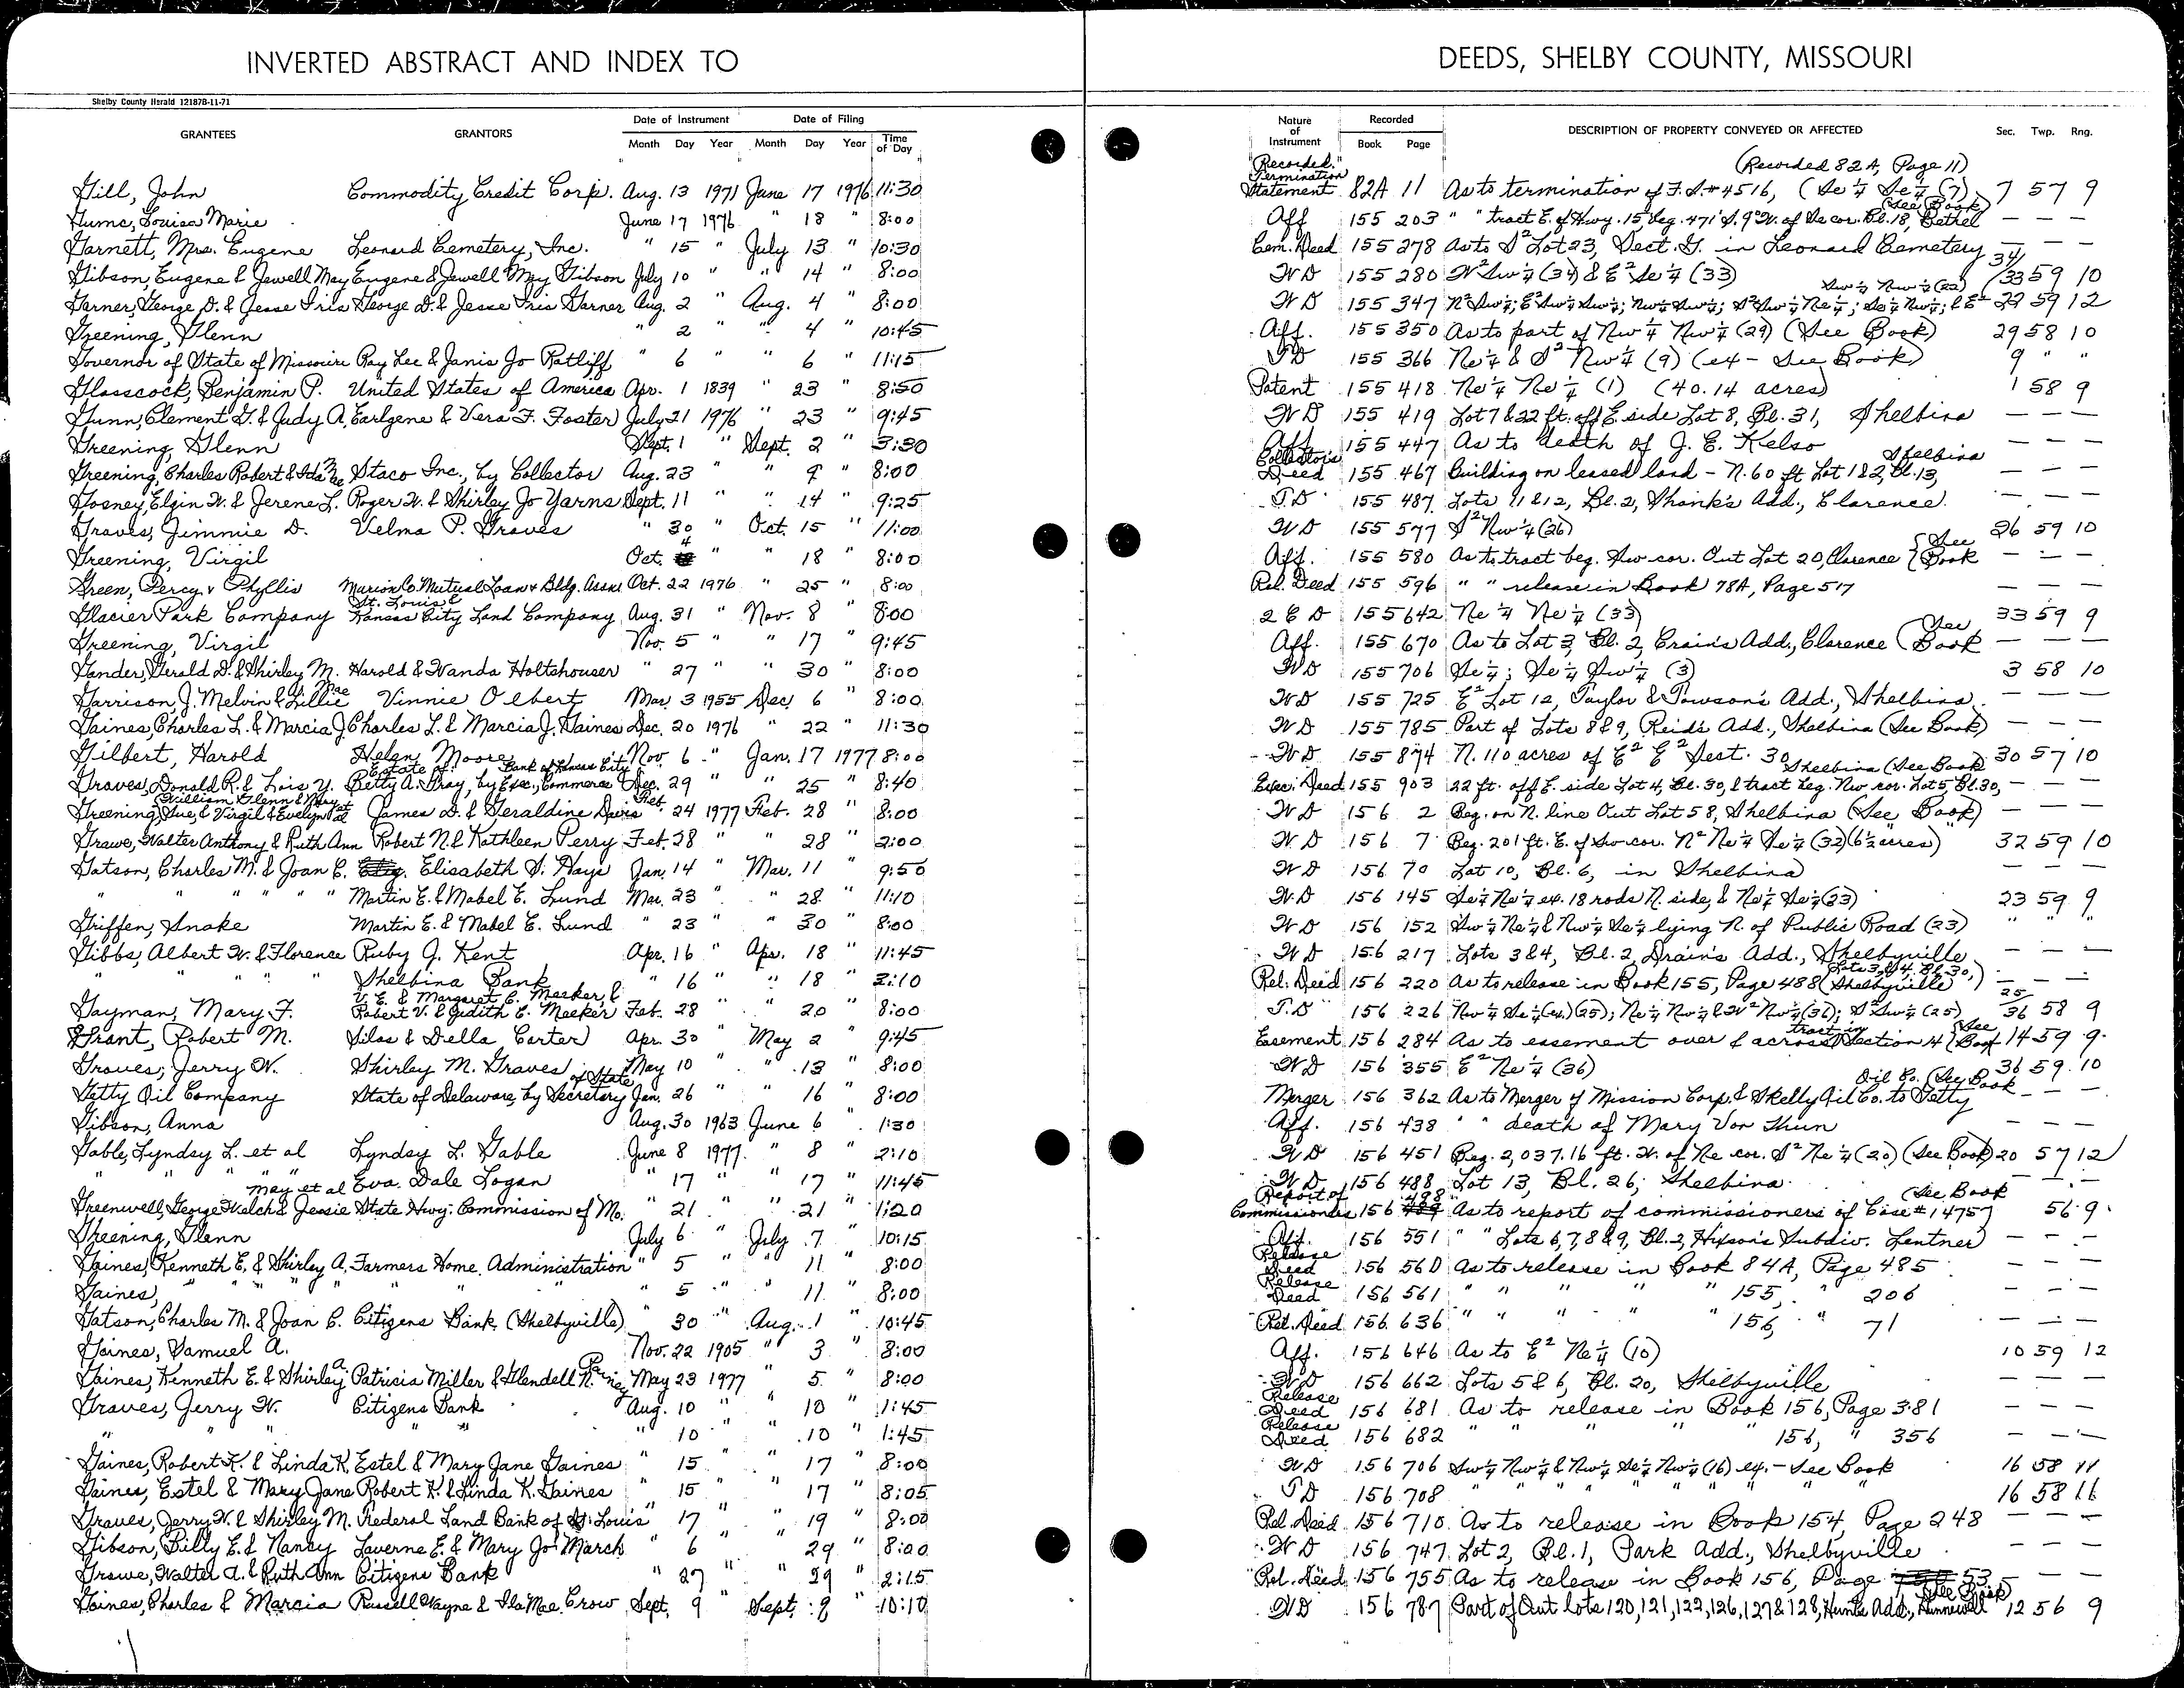 INVERTED ABSTRACT AND INDEX TO DEEDS, SHELBY COUNTY, MISSOURI
Shelby County Herald 12187B-11-71
GRANTEES GRANTORS Date of Instrument Date of Filing Nature of Instrument Recorded DESCRIPTION OF PROPERTY CONVEYED OR AFFECTED Sec. Twp. Rng.
Month Day Year Month Day Year Time of Day Book Page
"Recorded" (Recorded 82A, Page 11)
Gill, John Commodity Credit Corp. Aug. 13 1971 June 17 1976 11:30 Termination Statement 82A 11 As to termination of F.S.#4516, (Se ¼ Se ¼ (7) 7 57 9
Hume, Louisa Marie June 17 1976 " 18 " 8:00 Aff 155 203 " " tract E. of Hwy. 15, beg. 471' S. 9° W. of Se cor. Bl. 18, Bethel (See Book) — — —
Garnett, Mrs. Eugene Leonard Cemetery, Inc. " 15 " July 13 " 10:30 Cem. Deed 155 278 As to S² Lot 23, Sect. G. in Leonard Cemetery — — —
Gibson, Eugene & Jewell May Eugene & Jewell May Gibson July 10 " " 14 " 8:00 WD 155 280 N² Sw ¼ (34) & E² Se ¼ (33) 34/33 59 10
Garner, George D. & Jesse Iris George D. & Jesse Iris Garner Aug. 2 " Aug. 4 " 8:00 WD 155 347 N² Sw ¼; E² Sw ¼ Sw ¼; Nw ¼ Sw ¼; S² Sw ¼ Ne ¼; Se ¼ Nw ¼; & E² Sw ¼ Nw ¼ (22) 22 59 12
Greening, Glenn " 2 " " 4 " 10:45 Aff. 155 350 As to part of Nw ¼ Nw ¼ (29) (See Book) 29 58 10
Governor of State of Missouri Ray Lee & Janis Jo Ratliff " 6 " " 6 " 11:15 TD 155 366 Ne ¼ & S² Nw ¼ (9) (ex - See Book) 9 " "
Glasscock, Benjamin P. United States of America Apr. 1 1839 " 23 " 8:50 Patent 155 418 Ne ¼ Ne ¼ (1) (40.14 acres) 1 58 9
Gunn, Clement G. & Judy A. Earlgene & Vera F. Foster July 21 1976 " 23 " 9:45 WD 155 419 Lot 7 & 22 ft. off E side Lot 8, Bl. 31, Shelbina — — —
Greening, Glenn Sept. 1 " Sept. 2 " 3:30 Aff. 155 447 As to death of J. E. Kelso — — —
Greening, Charles Robert & Ida Mae Staco Inc., by Collector Aug. 23 " " 9 " 8:00 Collector's Deed 155 467 Building on leased land - N. 60 ft Lot 1 & 2, Bl. 13, Shelbina — — —
Gosney, Elgin W. & Jerene L. Roger W. & Shirley Jo Yarns Sept. 11 " " 14 " 9:25 TD 155 487 Lots 11 & 12, Bl. 2, Shank's Add., Clarence — — —
Graves, Jimmie D. Velma P. Graves " 30 " Oct. 15 " 11:00 WD 155 577 S² Nw ¼ (26) 26 59 10
Greening, Virgil Oct. 4 " " 18 " 8:00 Aff. 155 580 As to tract beg. Sw cor. Out Lot 20, Clarence (See Book — — —
Green, Percy & Phyllis Marion Co. Mutual Loan & Bldg. Assn. Oct. 22 1976 " 25 " 8:00 Rel. Deed 155 596 " " release in Book 78A, Page 517 — — —
Glacier Park Company St. Louis & Kansas City Land Company Aug. 31 " Nov. 8 " 8:00 2 C D 155 642 Ne ¼ Ne ¼ (33) 33 59 9
Greening, Virgil Nov. 5 " " 17 " 9:45 Aff. 155 670 As to Lot 3, Bl. 2, Crain's Add., Clarence (See Book — — —
Gander, Gerald D. & Shirley M. Harold & Wanda Holtshouser " 27 " " 30 " 8:00 WD 155 706 Se ¼; Se ¼ Sw ¼ (3) 3 58 10
Garrison, J. Melvin & Lillie Mae Vinnie Olbert Mar. 3 1955 Dec. 6 " 8:00 WD 155 725 E² Lot 12, Taylor & Towson's Add., Shelbina — — —
Gaines, Charles L. & Marcia J. Charles L. & Marcia J. Gaines Dec. 20 1976 " 22 " 11:30 WD 155 785 Part of Lots 8 & 9, Reid's Add., Shelbina (See Book) — — —
Gilbert, Harold Helen Moore Nov. 6 " Jan. 17 1977 8:00 WD 155 874 N. 110 acres of E² E² Sect. 30 30 57 10
Graves, Donald R. & Lois Y. Estate of: Betty A. Gray, by Exec. Commerce Bank of Kansas City Dec. 29 " " 25 " 8:40 Exec. Deed 155 903 22 ft. off E. side Lot 4, Bl. 30, & tract beg. Nw cor. Lot 5, Bl. 30, Shelbina (See Book) — — —
Greening, William Glenn & Mary Sue, & Virgil & Evelyn et al James D. & Geraldine Davis Feb. 24 1977 Feb. 28 " 8:00 WD 156 2 Beg. on N. line Out Lot 58, Shelbina (See Book) — — —
Grawe, Walter Anthony & Ruth Ann Robert N. & Kathleen Perry Feb. 28 " " 28 " 2:00 WD 156 7 Beg. 201 ft. E. of Sw cor. N² Ne ¼ Se ¼ (32) (6½ acres) 32 59 10
Gatson, Charles M. & Joan C. Elisabeth S. Hays Jan. 14 " Mar. 11 " 9:50 WD 156 70 Lot 10, Bl. 6, in Shelbina — — —
" " " " " Martin E. & Mabel E. Lund Mar. 23 " " 28 " 11:10 WD 156 145 Se ¼ Ne ¼ ex. 18 rods N. side, & Ne ¼ Se ¼ (23) 23 59 9
Griffen, Snake Martin E. & Mabel E. Lund " 23 " " 30 " 8:00 WD 156 152 Sw ¼ Ne ¼ & Nw ¼ Se ¼ lying N. of Public Road (23) " " "
Gibbs, Albert W. & Florence Ruby J. Kent Apr. 16 " Apr. 18 " 11:45 WD 156 217 Lots 3 & 4, Bl. 2, Drain's Add., Shelbyville — — —
" " " " Shelbina Bank " 16 " " 18 " 2:10 Rel. Deed 156 220 As to release in Book 155, Page 488 (Lots 3 & 4, Bl. 30, Shelbyville) — — —
Gayman, Mary F. V. E. & Margaret C. Meeker, & Robert V. & Judith C. Meeker Feb. 28 " " 20 " 8:00 T.D 156 226 Nw ¼ Se ¼ (ex.) (25); Ne ¼ Nw ¼ & W² Nw ¼ (36); S² Sw ¼ (25) 25/36 58 9
Grant, Robert M. Silas & Della Carter Apr. 30 " May 2 " 9:45 Easement 156 284 As to easement over & across tract in Section 14 (See Book 14 59 9
Groves, Jerry W. Shirley M. Graves May 10 " " 13 " 8:00 WD 156 355 E² Ne ¼ (36) 36 59 10
Getty Oil Company State of Delaware, by Secretary of State Jan. 26 " " 16 " 8:00 Merger 156 362 As to Merger of Mission Corp. & Skelly Oil Co. to Getty Oil Co. (See Book — — —
Gibson, Anna Aug. 30 1963 June 6 " 1:30 Aff. 156 438 " " death of Mary Von Thun — — —
Gable, Lyndsy L. et al Lyndsy L. Gable June 8 1977 " 8 " 2:10 WD 156 451 Beg. 2,037.16 ft. W. of Ne cor. S² Ne ¼ (20) (See Book) 20 57 12
" " " " Eva Dale Logan " 17 " " 17 " 11:45 WD 156 488 Lot 13, Bl. 26, Shelbina — — —
Greenwell, George Welch & Jessie May et al State Hwy. Commission of Mo. " 21 " " 21 " 1:20 Report of Commissioners 156 498 As to report of commissioners of Case #14757 (See Book 56 9
Greening, Glenn July 6 " July 7 " 10:15 Aff. 156 551 " " Lots 6, 7, 8 & 9, Bl. 2, Hixson's Subdiv. Lentner — — —
Gaines, Kenneth E. & Shirley A. Farmers Home Administration " 5 " " 11 " 8:00 Release Deed 156 560 As to release in Book 84A, Page 485 — — —
Gaines, " " " " " " " " 5 " " 11 " 8:00 Release Deed 156 561 " " " " " 155, " 206 — — —
Gatson, Charles M. & Joan C. Citizens Bank (Shelbyville) " 30 " Aug. 1 " 10:45 Rel. Deed 156 636 " " " " " 156, " 71 — — —
Gaines, Samuel A. Nov. 22 1905 " 3 " 8:00 Aff. 156 646 As to E² Ne ¼ (10) 10 59 12
Gaines, Kenneth E. & Shirley A. Patricia Miller & Glendell R. May 23 1977 " 5 " 8:00 WD 156 662 Lots 5 & 6, Bl. 20, Shelbyville — — —
Graves, Jerry W. Citizens Bank Aug. 10 " " 10 " 1:45 Release Deed 156 681 As to release in Book 156, Page 381 — — —
" " " " " 10 " " 10 " 1:45 Release Deed 156 682 " " " " " 156, " 356 — — —
Gaines, Robert K. & Linda K. Estel & Mary Jane Gaines " 15 " " 17 " 8:00 WD 156 706 Sw ¼ Nw ¼ & Nw ¼ Se ¼ Nw ¼ (16) ex. - See Book 16 58 11
Gaines, Estel & Mary Jane Robert K. & Linda K. Gaines " 15 " " 17 " 8:05 TD 156 708 " " " " " " " " " 16 58 11
Graves, Jerry W. & Shirley M. Federal Land Bank of St. Louis " 17 " " 19 " 8:00 Rel. Deed 156 710 As to release in Book 154, Page 248 — — —
Gibson, Billy E. & Nancy Laverne E. & Mary Jo March " 6 " " 29 " 8:00 WD 156 747 Lot 2, Bl. 1, Park Add., Shelbyville — — —
Grawe, Walter A. & Ruth Ann Citizens Bank " 27 " " 29 " 2:15 Rel. Deed 156 755 As to release in Book 156, Page 53 — — —
Gaines, Charles & Marcia Russell Wayne & Ila Mae Crow Sept. 9 " Sept. 9 " 10:10 WD 156 787 Part of Out lots 120, 121, 122, 126, 127 & 128, Hunt's Add., Hunnewell (See Book) 12 56 9